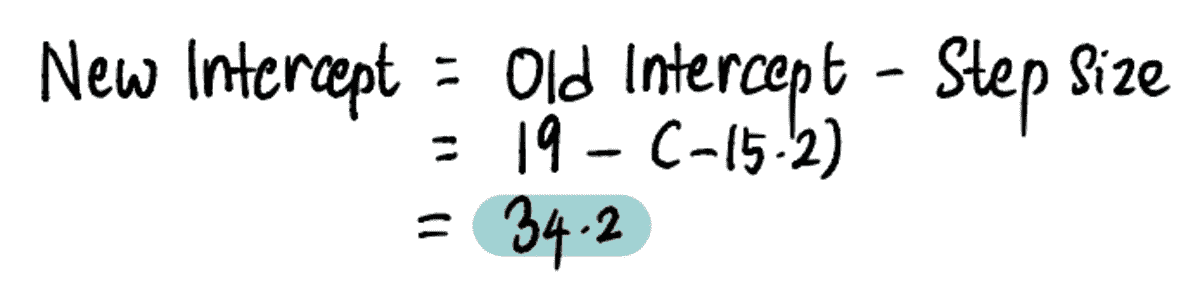 New Intercept = Old Intercept - Step Size
= 19 - (-15.2)
= 34.2